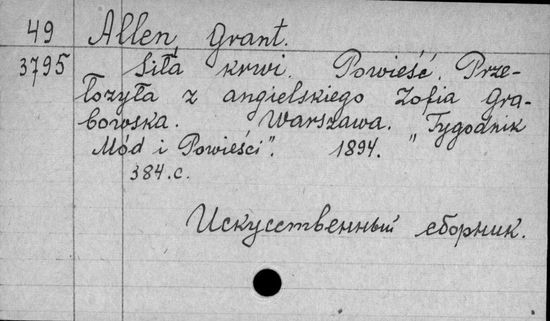 49 Allen, Grant.
3795 Siłą krwi. Powieść. Prze-
łożyła z angielskiego Zofia Gra-
bowska. Warszawa. "Tygodnik
Mód i Powieści". 1894.
384.c.
Искусственный сборник.